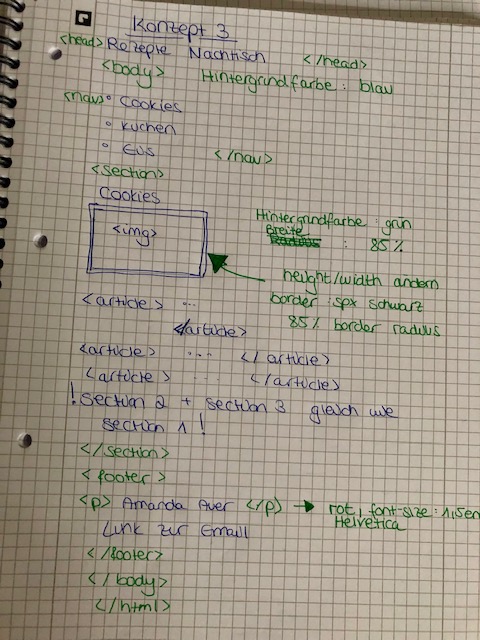 Konzept 3
<head> Rezepte Nachtisch </head>
<body> Hintergrundfarbe: blau
<nav> ° Cookies
° Kuchen
° Eus </nav>
<section>
Cookies
<img>
Hintergrundfarbe: grün
Breite : 85%
height/width ändern
border: 5px schwarz
85% border radius
<article> ...
</article>
<article> .... </article>
<article> ... </article>
! section 2 + section 3 gleich wie
section 1 !
</section>
<footer>
<p> Amanda Auer </p> → rot, font-size: 1,5em
Helvetica
Link zur Email
</footer>
</body>
</html>